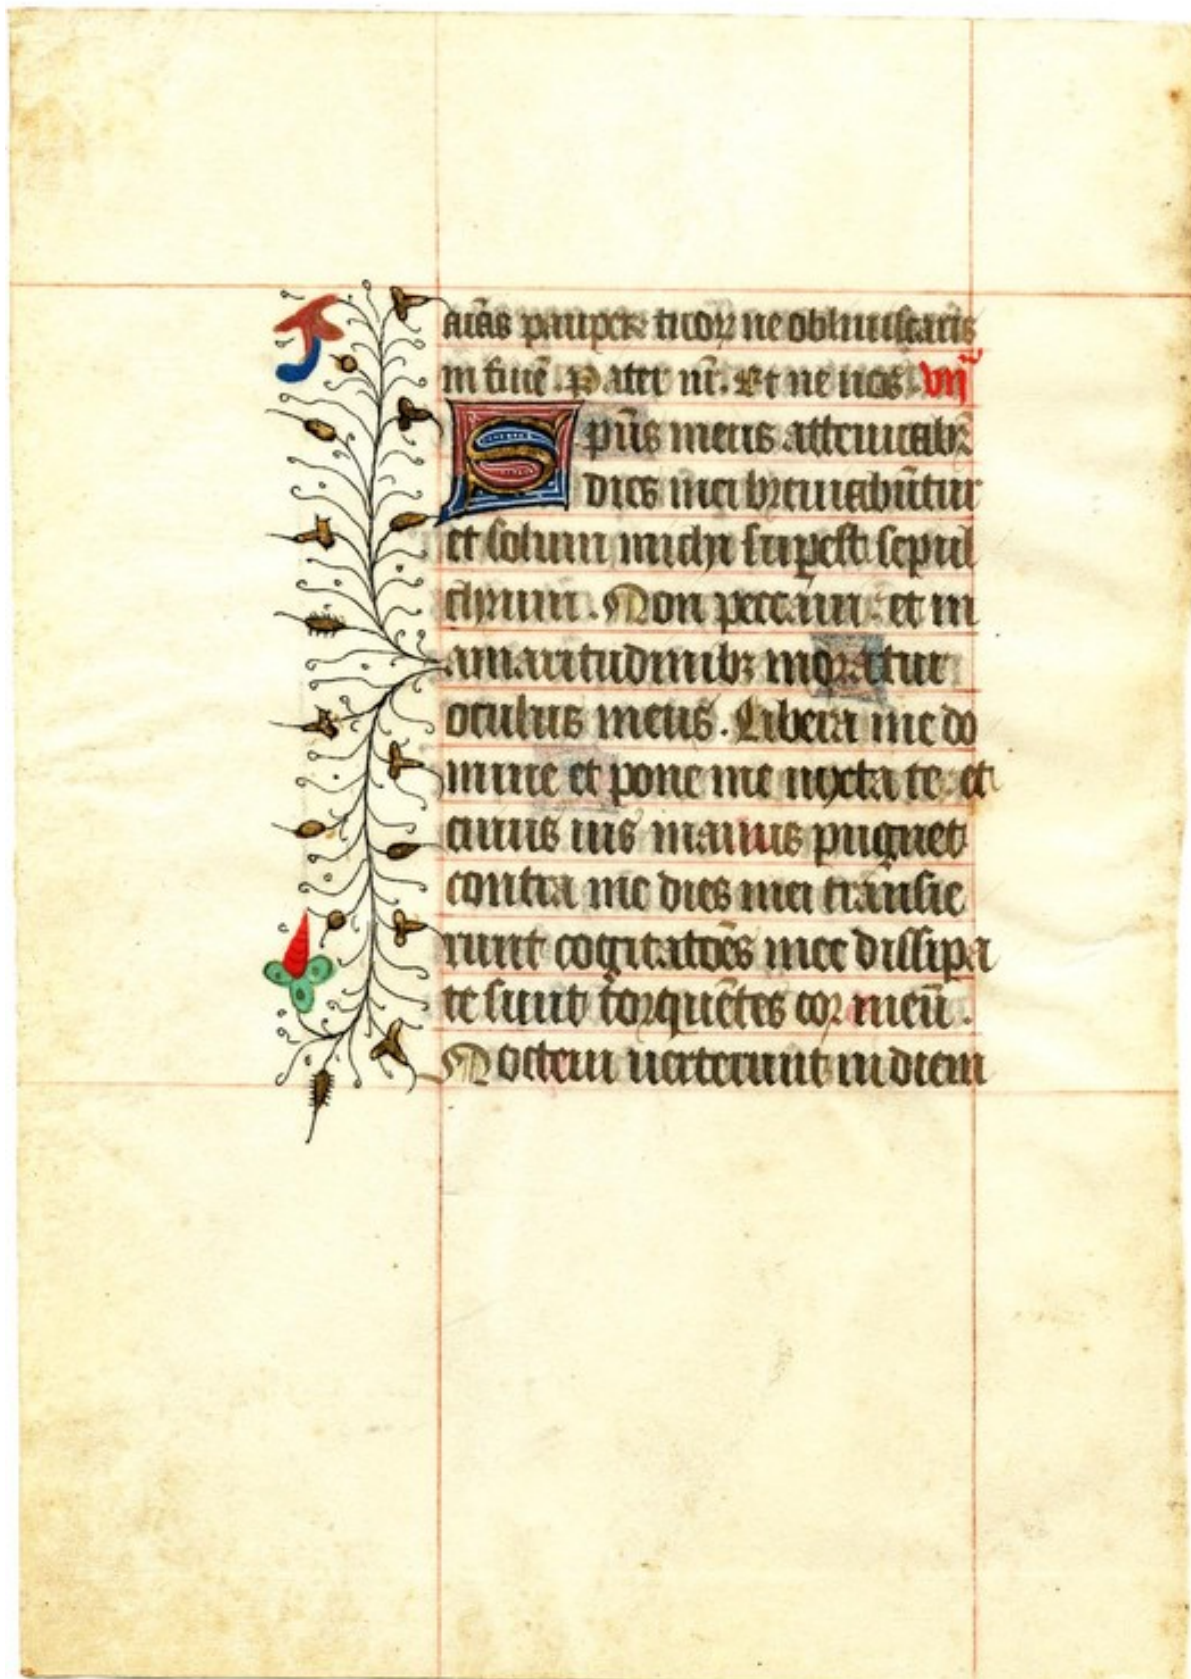 aīas paupeꝝ tuoꝝ ne obliuiscaris
in finē. Pater nr̄. Et ne nos. vijᵃ
Spūs meus attenuabr̄
dies mei breuiabūtur
et solum michi suꝑest sepul
chrum. Non peccaui et in
amaritudinibꝫ moratur
oculus meus. Libera me do
mine et pone me iuxta te et
cuius uis manus pugnet
contra me dies mei transie
runt cogitatōes mee dissipa
te sunt torquētes cor meū.
Noctem uerterunt in diem